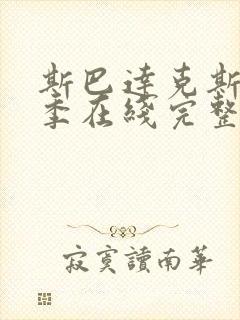 斯巴達克斯
季在綫完整
寂寞讀南華